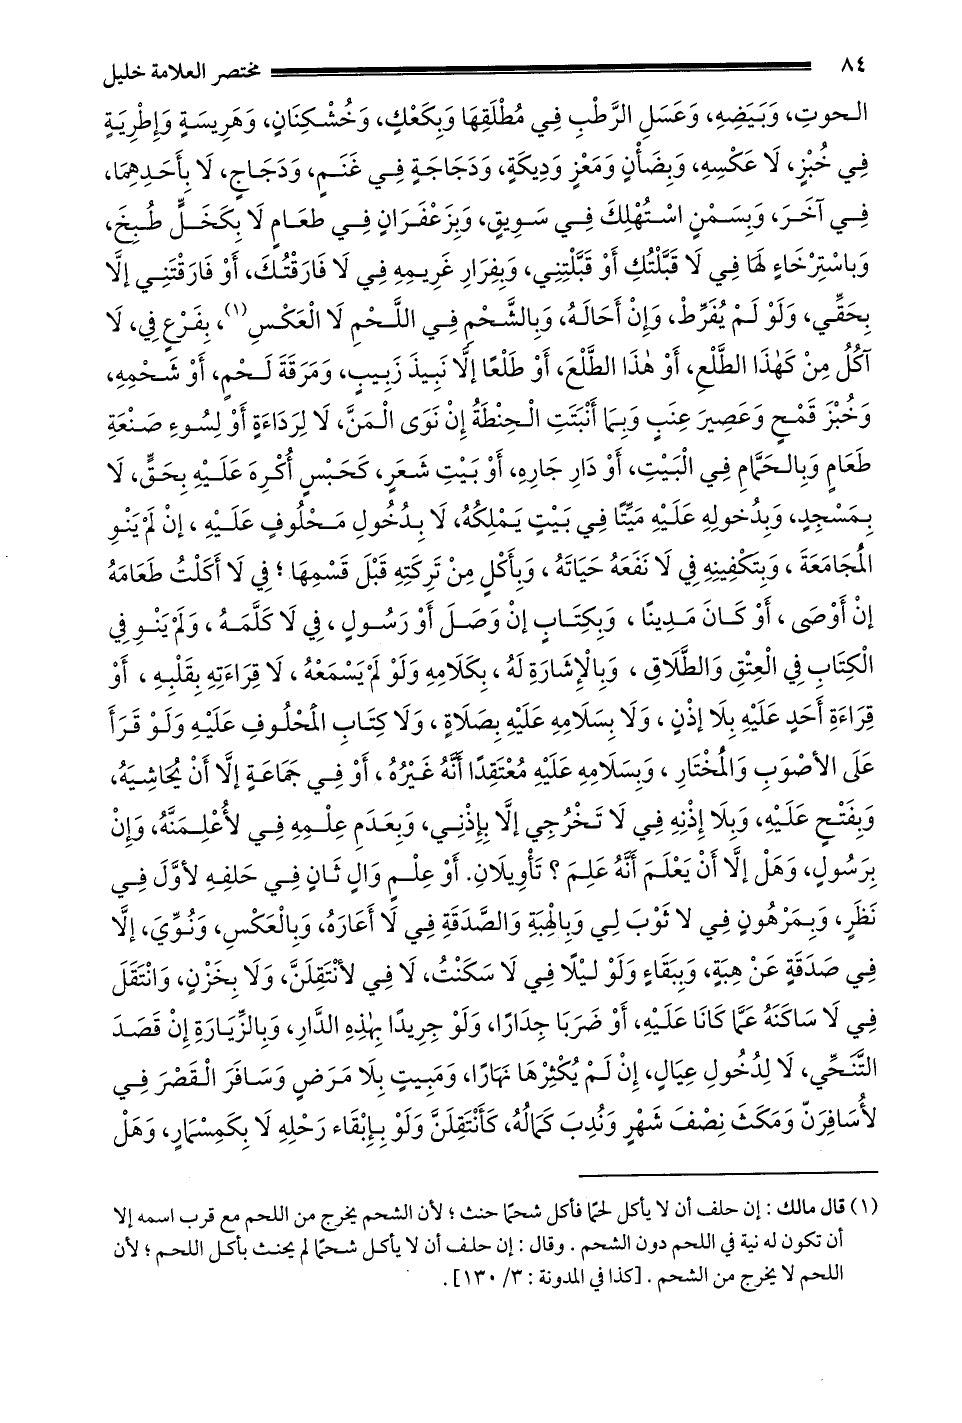 ٨٤ مختصر العلامة خليل
الحوتِ، وَبَيَضِهِ، وَعَسَلِ الرَّطْبِ فِي مُطْلَقِهَا وَبِكَعْكٍ، وَخُشْكِنَانٍ، وَهَرِيسَةٍ وَإطْرِيَةٍ
فِي خُبْزٍ، لَا عَكْسِهِ، وَبِضَأْنٍ وَمَعْزٍ وَدِيكَةٍ، وَدَجَاجَةٍ فِي غَنَمٍ، وَدَجَاجٍ، لَا بِأَحَدِهِمَا،
فِي آخَرَ، وَبِسَمْنٍ اسْتُهْلِكَ فِي سَوِيقٍ، وَبِزَعْفَرَانٍ فِي طعَامٍ لَا بِكَخَلٍّ طُبِخَ،
وَبِاسْتِرْخَاءٍ لَهَا فِي لَا قَبَّلْتُكِ أَوْ قَبَّلْتِنِي، وَبِفِرَارِ غَرِيمِهِ فِي لَا فَارَقْتُكَ، أَوْ فَارَقْتَنِي إلَّا
بِحَقِّي، وَلَوْ لَمْ يُفَرِّطْ، وَإِنْ أَحَالَهُ، وَبِالشَّحْمِ فِي اللَّحْمِ لَا الْعَكْسِ(١)، بِفَرْعٍ فِي، لَا
آكُلُ مِنْ كَهَذَا الطَّلْعِ، أَوْ هَذَا الطَّلْعَ، أَوْ طَلْعًا إلَّا نَبِيذَ زَبِيبٍ، وَمَرَقَةَ لَحْمٍ، أَوْ شَحْمِهِ،
وَخُبْزَ قَمْحٍ وَعَصِيرَ عِنَبٍ وَبِمَا أَنْبَتَتِ الْحِنْطَةُ إنْ نَوَى الْمَنَّ، لَا لِرَدَاءَةٍ أَوْ لِسُوءِ صَنْعَةِ
طَعَامٍ وَبِالحَمَّامِ فِي الْبَيْتِ، أَوْ دَارِ جَارِهِ، أَوْ بَيْتِ شَعَرٍ، كَحَبْسٍ أُكْرِهَ عَلَيْهِ بِحَقٍّ، لَا
بِمَسْجِدٍ، وَبِدُخولِهِ عَلَيْهِ مَيِّتًا فِي بَيْتٍ يَمْلِكُهُ، لَا بِدُخُولِ مَحْلُوفٍ عَلَيْهِ ، إنْ لَمْ يَنْوِ
المُجَامَعَةَ ، وَبِتَكْفِينِهِ فِي لَا نَفَعَهُ حَيَاتَهُ ، وَبِأَكْلٍ مِنْ تَرِكَتِهِ قَبْلَ قَسْمِهَا ؛ فِي لَا أَكَلْتُ طَعَامَهُ
إنْ أَوْصَى ، أَوْ كَانَ مَدِينًا ، وَبِكِتَابٍ إنْ وَصَلَ أَوْ رَسُولٍ ، فِي لَا كَلَّمَهُ ، وَلَمْ يَنْوِ فِي
الْكِتَابِ فِي الْعِتْقِ وَالطَّلَاقِ ، وَبِالْإِشَارَةِ لَهُ ، بِكَلَامِهِ وَلَوْ لَمْ يَسْمَعْهُ ، لَا قِرَاءَتِهِ بِقَلْبِهِ ، أَوْ
قِرَاءَةِ أَحَدٍ عَلَيْهِ بِلَا إذْنٍ ، وَلَا بِسَلَامِهِ عَلَيْهِ بِصَلَاةٍ ، وَلَا كِتَابِ المَحْلُوفِ عَلَيْهِ وَلَوْ قَرَأَ
عَلَى الأصْوَبِ وَالمُخْتَارِ ، وَبِسَلَامِهِ عَلَيْهِ مُعْتَقِدًا أَنَّهُ غَيْرُهُ ، أَوْ فِي جَمَاعَةٍ إلَّا أَنْ يُحَاشِيَهُ،
وَبِفَتْحٍ عَلَيْهِ، وَبِلَا إذْنِهِ فِي لَا تَخْرُجِي إلَّا بِإِذْنِي، وَبِعَدَمِ عِلْمِهِ فِي لأُعْلِمَنَّهُ، وَإِنْ
بِرَسُولٍ، وَهَلْ إلَّا أَنْ يَعْلَمَ أَنَّهُ عَلِمَ ؟ تَأْوِيلَانِ. أَوْ عِلْمِ وَالٍ ثَانٍ فِي حَلِفِهِ لأوَّلَ فِي
نَظَرٍ، وَبِمَرْهُونٍ فِي لا ثَوْبَ لِي وَبِالْهِبَةِ وَالصَّدَقَةِ فِي لَا أَعَارَهُ، وَبِالْعَكْسِ، وَنُوِّيَ، إلَّا
فِي صَدَقَةٍ عَنْ هِبَةٍ، وَبِبَقَاءٍ وَلَوْ لَيْلًا فِي لَا سَكَنْتُ، لَا فِي لأنْتَقِلَنَّ، وَلَا بِخَزْنٍ، وَانْتَقَلَ
فِي لَا سَاكَنَهُ عَمَّا كَانَا عَلَيْهِ، أَوْ ضَرَبَا جِدَارًا، وَلَوْ جرِيدًا بِهَذِهِ الدَّارِ، وَبِالزِّيَارَةِ إنْ قَصَدَ
التَّنَحِّي، لَا لِدُخُولِ عِيَالٍ، إنْ لَمْ يُكْثِرْهَا نَهَارًا، وَمَبِيتٍ بِلَا مَرَضٍ وَسَافَرَ الْقَصْرَ فِي
لأُسَافِرَنّ وَمَكَثَ نِصْفَ شَهْرٍ وَنُدِبَ كَمَالُهُ، كَأَنْتَقِلَنَّ وَلَوْ بِإِبْقَاء رَحْلِهِ لَا بِكَمِسْمَارٍ، وَهَلْ
(١) قال مالك : إن حلف أن لا يأكل لحمًا فأكل شحمًا حنث ؛ لأن الشحم يخرج من اللحم مع قرب اسمه إلا
أن تكون له نية في اللحم دون الشحم . وقال : إن حلف أن لا يأكل شحمًا لم يحنث بأكل اللحم ؛ لأن
اللحم لا يخرج من الشحم . [كذا في المدونة : ٣/ ١٣٠] .